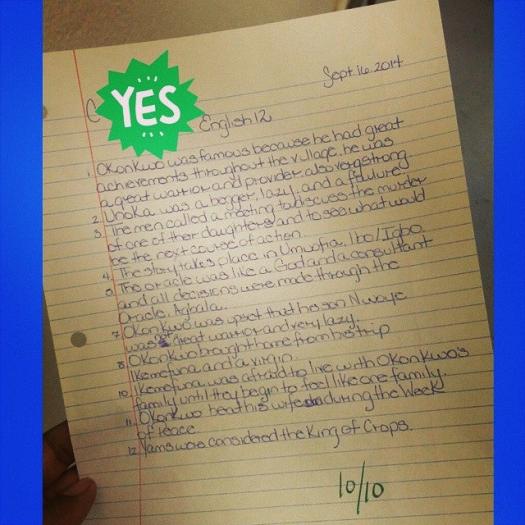 Sept.16.2014
C
YES
English 12
1. Okonkwo was famous because he had great
achievements throughout the village, he was
a great warrior and provider also very strong
2. Unoka was a beggar, lazy, and a failure
3. The men called a meeting to discuss the murder
of one of their daughters and to see what would
be the next course of action.
4. The story takes place in Umuofia, Ibo/Igbo
5. The oracle was like a God and a consultant
and all decisions were made through the
Oracle, Agbala.
7. Okonkwo was upset that his son Nwoye
was not great warrior and very lazy.
8. Okonkwo brought home from his trip
Ikemefuna and a virgin.
10. Ikemefuna was afraid to live with Okonkwo's
family until they begin to feel like one family.
11. Okonkwo beat his wife during the Week
of Peace
12. Yams were considered the King of Crops.
10/10